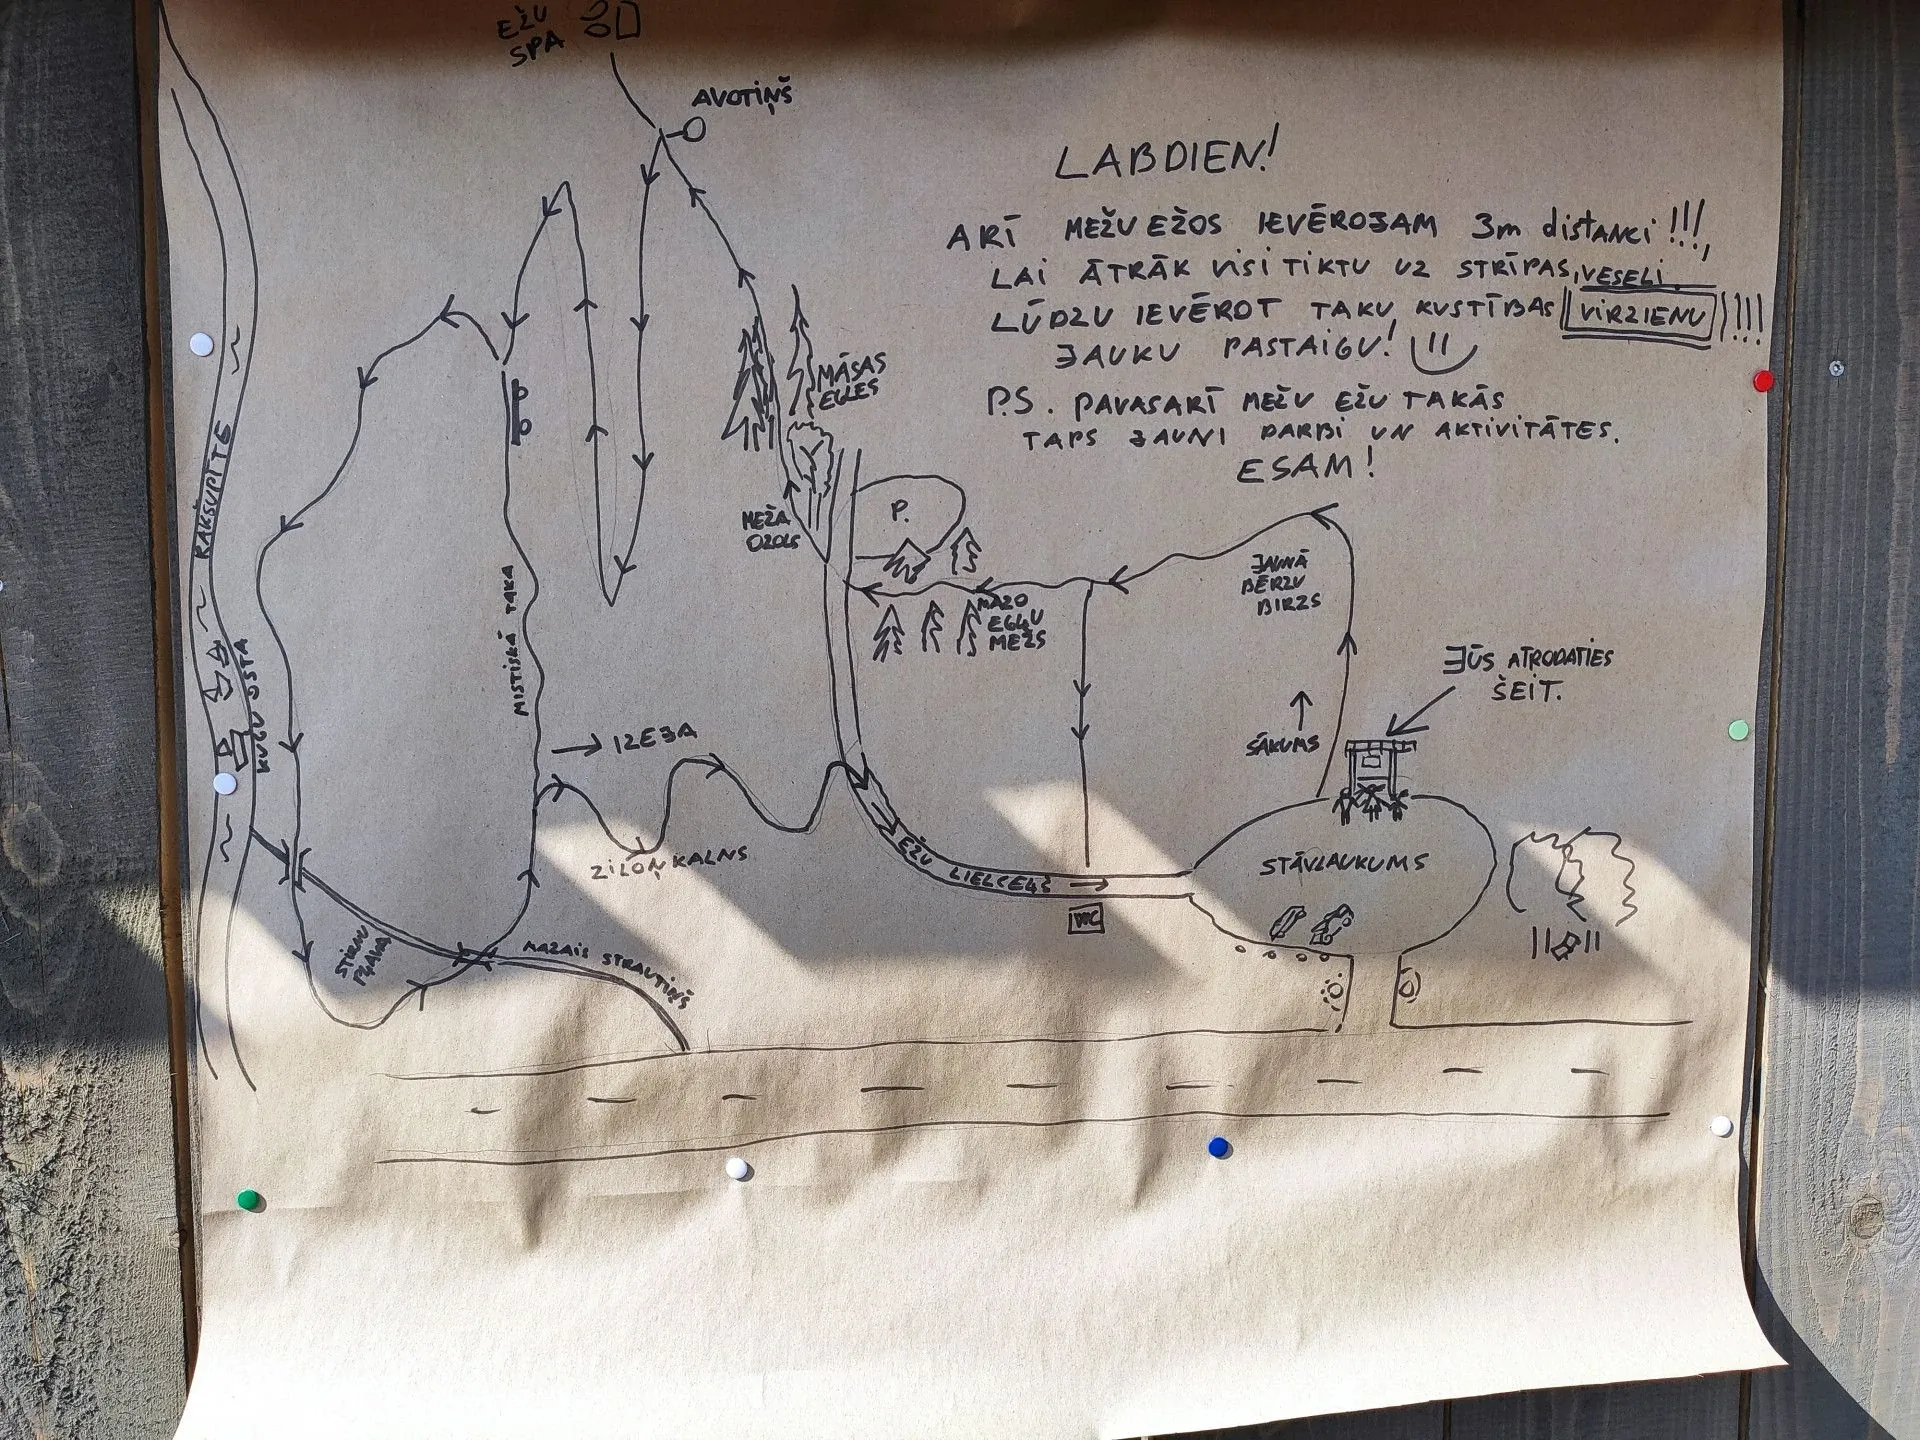 EŽU
SPA
AVOTIŅŠ
LABDIEN!
ARĪ MEŽU EŽOS IEVĒROJAM 3m distanci!!!,
LAI ĀTRĀK VISI TIKTU UZ STRĪPAS, VESELI.
LŪDZU IEVĒROT TAKU KUSTĪBAS VIRZIENU!!!!
JAUKU PASTAIGU!
P.S. PAVASARĪ MEŽU EŽU TAKĀS
TAPS JAUNI DARBI UN AKTIVITĀTES.
ESAM!
MĀSAS
EGLES
MEŽA
OZOLS
P.
JAUNĀ
BĒRZU
BIRZS
MAZO
EGĻU
MEŽS
RAKŠUPĪTE
KUĢU OSTA
MISTISKĀ TAKA
IZEJA
SĀKUMS
JŪS ATRODATIES
ŠEIT.
ZILOŅKALNS
EŽU LIELCEĻŠ
WC
STĀVLAUKUMS
STIRNU
PĻAVA
MAZAIS STRAUTIŅŠ